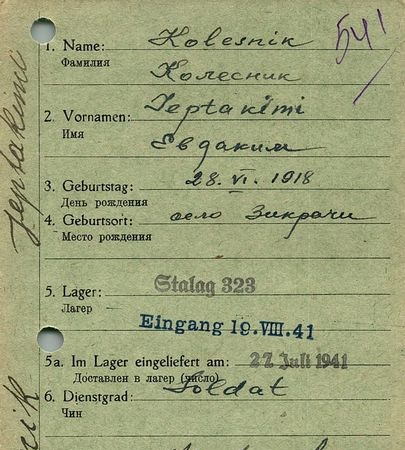 541
1. Name: Kolesnik
Фамилия Колесник
2. Vornamen: Jeptakimi
Имя Евдаким
3. Geburtstag: 28. VI. 1918
День рождения
4. Geburtsort: село Зикрачи
Место рождения
5. Lager: Stalag 323
Лагер
Eingang 19.VIII.41
5a. Im Lager eingeliefert am: 27 Juli 1941
Доставлен в лагер (число)
6. Dienstgrad: Soldat
Чин
Jeptakimi